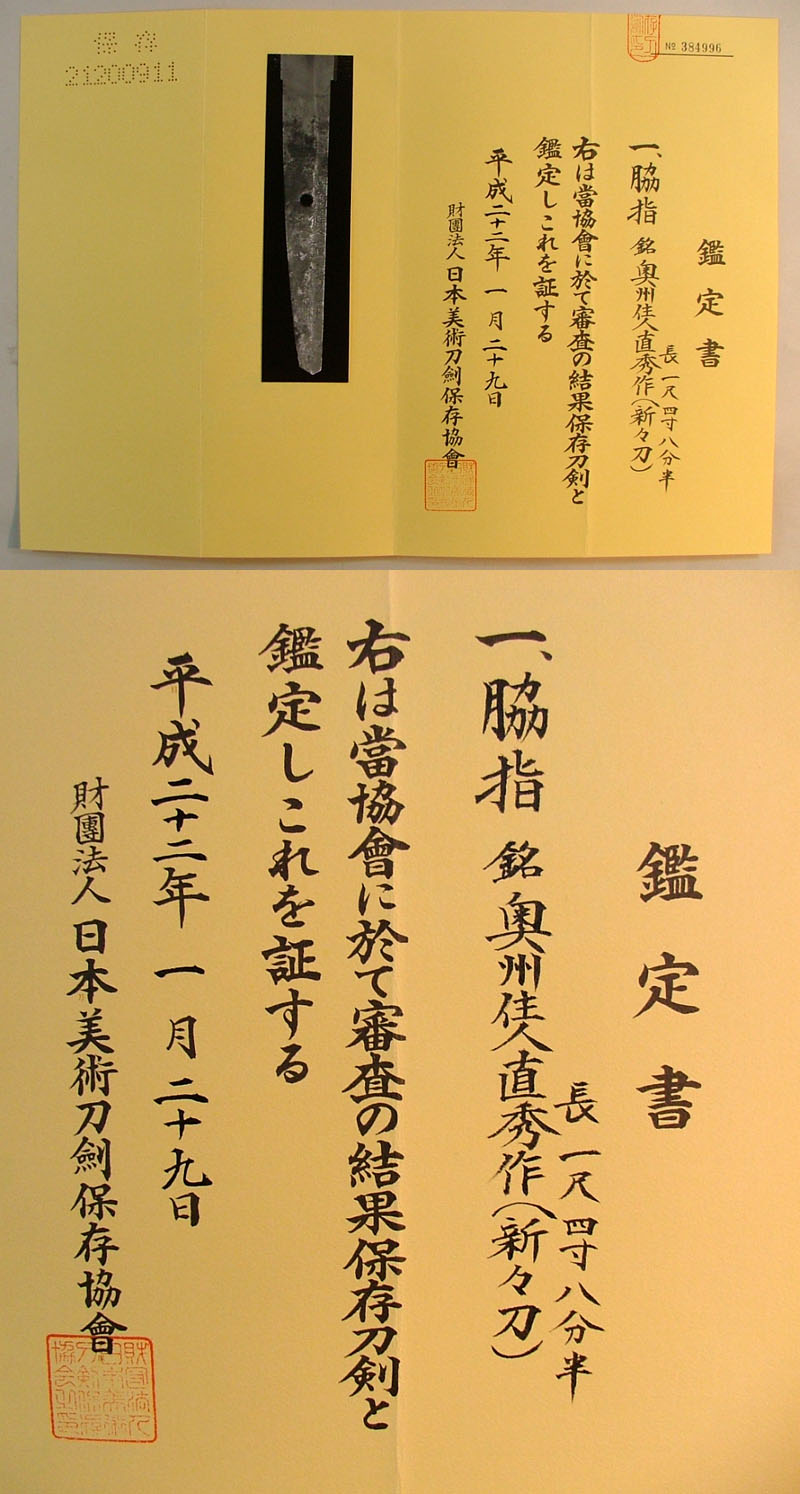 保存
21200911
№ 384996
鑑定書
一、脇指 銘 奥州住人直秀作(新々刀)
長 一尺四寸八分半
右は當協會に於て審査の結果保存刀剣と
鑑定しこれを証する
平成二十二年 一月二十九日
財團法人 日本美術刀劍保存協會
鑑定書
一、脇指 銘 奥州住人直秀作(新々刀)
長 一尺四寸八分半
右は當協會に於て審査の結果保存刀剣と
鑑定しこれを証する
平成二十二年 一月二十九日
財團法人 日本美術刀劍保存協會